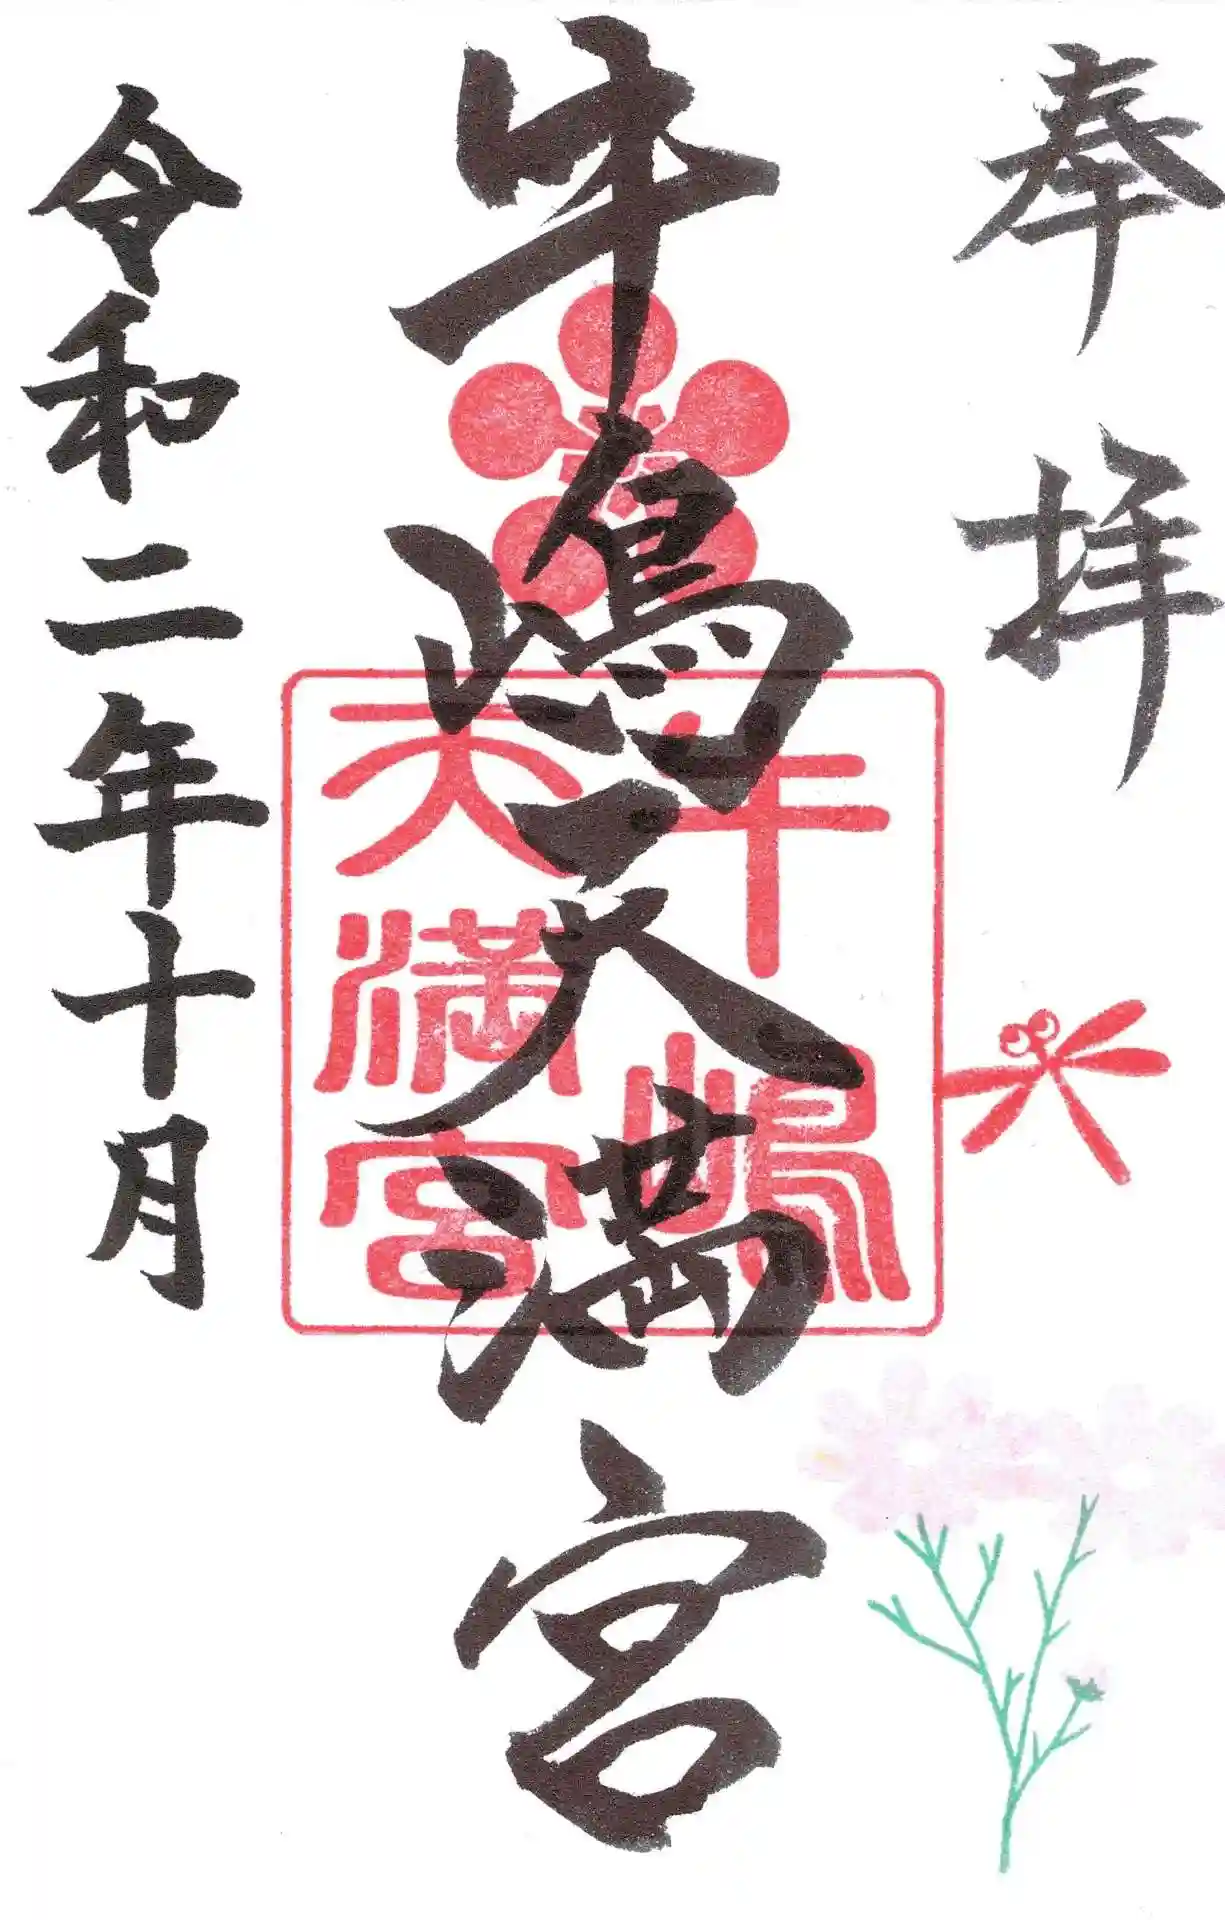 奉拝
牛嶋天満宮
牛嶋
天満宮
令和二年十月